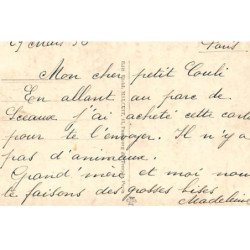 Mars 36 Paris
Mon cher petit Couli
En allant au parc de
Sceaux j'ai acheté cette carte
pour te l'envoyer. Il n'y a
pas d'animaux.
Grand'mère et moi nous
te faisons des grosses bises
Madeleine